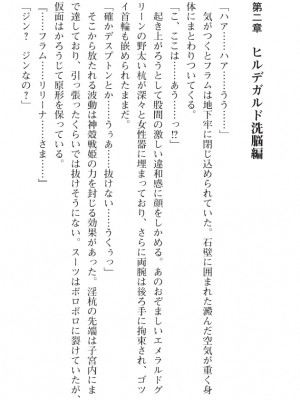 第二章　ヒルデガルド洗脳編
「ハァ……ハァ……うう……」
　気がつくとフラムは地下牢に閉じ込められていた。石壁に囲まれた澱んだ空気が重く身
体にまとわりついてくる。
「こ、ここは……あう……っ!?」
　起き上がろうとして股間の激しい違和感に顔をしかめる。あのおぞましいエメラルドグ
リーンの野太い杭が深々と女性器に埋まっており、さらに両腕は後ろ手に拘束され、ゴツ
イ首輪も嵌められたままだ。
「確かデスプトンとか……うぅぁ……っ……うくぅっ」
　そこから放たれる波動は神殻戦姫の力を封じる効果があった。淫杭の先端は子宮内にま
で達しており、引っ張ったくらいでは抜けそうにない。スーツはボロボロに裂けていたが、
仮面はかろうじて原形を保っている。
「……フラム……リリーナ……さま……」
「ジン？　ジンなの？」